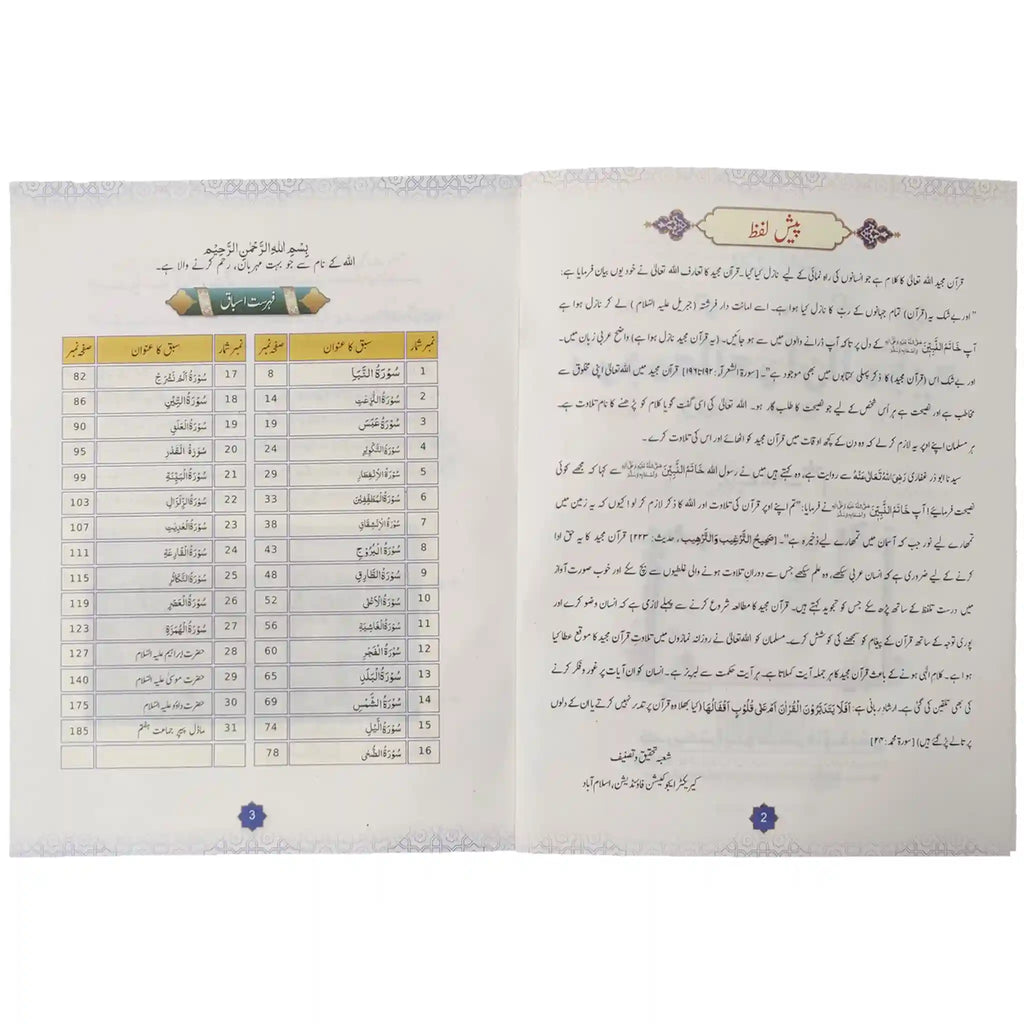 پیش لفظ
قرآن مجید اللہ تعالیٰ کا کلام ہے جو انسانوں کی راہ نمائی کے لیے نازل کیا گیا۔ قرآن مجید کا تعارف اللہ تعالیٰ نے خود یوں بیان فرمایا ہے:
"اور بے شک یہ (قرآن) تمام جہانوں کے ربّ کا نازل کیا ہوا ہے۔ اسے امانت دار فرشتہ (جبریل علیہ السّلام) لے کر نازل ہوا ہے
آپ خَاتَمُ النَّبِیّٖنَ کے دل پر تاکہ آپ ڈرانے والوں میں سے ہو جائیں۔ (یہ قرآن مجید نازل ہوا ہے) واضح عربی زبان میں۔
اور بے شک اس (قرآن مجید) کا ذکر پہلی کتابوں میں بھی موجود ہے"۔ [سورۃ الشعرآء: ۱۹۲ تا ۱۹۶] قرآن مجید میں اللہ تعالیٰ اپنی مخلوق سے
مخاطب ہے اور نصیحت ہے ہر اُس شخص کے لیے جو نصیحت کا طلب گار ہو۔ اللہ تعالیٰ کی اسی گفت گو یا کلام کو پڑھنے کا نام تلاوت ہے۔
ہر مسلمان اپنے اوپر یہ لازم کر لے کہ وہ دن کے کچھ اوقات میں قرآن مجید کو اٹھائے اور اس کی تلاوت کرے۔
سیدنا ابوذر غفاری رَضِیَ اللہُ تَعَالیٰ عَنْہُ سے روایت ہے، وہ کہتے ہیں میں نے رسول اللہ خَاتَمُ النَّبِیّٖنَ سے کہا کہ مجھے کوئی
نصیحت فرمایئے! آپ خَاتَمُ النَّبِیّٖنَ نے فرمایا: "تم اپنے اوپر قرآن کی تلاوت اور اللہ کا ذکر لازم کر لو! کیوں کہ یہ زمین میں
تمھارے لیے نور جب کہ آسمان میں تمھارے لیے ذخیرہ ہے"۔ [صَحِیحُ التَّرْغِیب وَالتَّرْھِیب، حدیث: ۲۲۳] قرآن مجید کا یہ حق ادا
کرنے کے لیے ضروری ہے کہ انسان عربی سیکھے، وہ علم سیکھے جس سے دورانِ تلاوت ہونے والی غلطیوں سے بچ سکے اور خوب صورت آواز
میں درست تلفظ کے ساتھ پڑھ سکے جس کو تجوید کہتے ہیں۔ قرآن مجید کا مطالعہ شروع کرنے سے پہلے لازمی ہے کہ انسان وضو کرے اور
پوری توجہ کے ساتھ قرآن کے پیغام کو سمجھنے کی کوشش کرے۔ مسلمان کو اللہ تعالیٰ نے روزانہ نمازوں میں تلاوتِ قرآن مجید کا موقع عطا کیا
ہوا ہے۔ کلامِ الٰہی ہونے کے باعث قرآن مجید کا ہر جملہ آیت کہلاتا ہے۔ ہر آیت حکمت سے لبریز ہے۔ انسان کو ان آیات پر غور و فکر کرنے
کی بھی تلقین کی گئی ہے۔ ارشادِ ربانی ہے: اَفَلَا یَتَدَبَّرُوْنَ الْقُرْاٰنَ اَمْ عَلٰی قُلُوْبٍ اَقْفَالُھَا (کیا بھلا وہ قرآن پر تدبر نہیں کرتے یا ان کے دلوں
پر تالے پڑ گئے ہیں) [سورۃ محمد: ۲۴]
شعبہ تحقیق و تصنیف
کیریکٹر ایجوکیشن فاؤنڈیشن، اسلام آباد
2
بِسْمِ اللہِ الرَّحْمٰنِ الرَّحِیْمِ
اللہ کے نام سے جو بہت مہربان، رحم کرنے والا ہے۔
فہرست اسباق
نمبر شمار سبق کا عنوان صفحہ نمبر نمبر شمار سبق کا عنوان صفحہ نمبر
1 سُوْرَۃُ النَّبَاِ 8 17 سُوْرَۃُ اَلَمْ نَشْرَحْ 82
2 سُوْرَۃُ النّٰزِعٰتِ 14 18 سُوْرَۃُ التِّیْنِ 86
3 سُوْرَۃُ عَبَسَ 19 19 سُوْرَۃُ الْعَلَقِ 90
4 سُوْرَۃُ التَّکْوِیْرِ 24 20 سُوْرَۃُ الْقَدْرِ 95
5 سُوْرَۃُ الْاِنْفِطَارِ 29 21 سُوْرَۃُ الْبَیِّنَۃِ 99
6 سُوْرَۃُ الْمُطَفِّفِیْنَ 33 22 سُوْرَۃُ الزِّلْزَالِ 103
7 سُوْرَۃُ الْاِنْشِقَاقِ 38 23 سُوْرَۃُ الْعٰدِیٰتِ 107
8 سُوْرَۃُ الْبُرُوْجِ 43 24 سُوْرَۃُ الْقَارِعَۃِ 111
9 سُوْرَۃُ الطَّارِقِ 48 25 سُوْرَۃُ التَّکَاثُرِ 115
10 سُوْرَۃُ الْاَعْلٰی 52 26 سُوْرَۃُ الْعَصْرِ 119
11 سُوْرَۃُ الْغَاشِیَۃِ 56 27 سُوْرَۃُ الْھُمَزَۃِ 123
12 سُوْرَۃُ الْفَجْرِ 60 28 حضرت ابراہیم علیہ السّلام 127
13 سُوْرَۃُ الْبَلَدِ 65 29 حضرت موسیٰ علیہ السّلام 140
14 سُوْرَۃُ الشَّمْسِ 69 30 حضرت داؤد علیہ السّلام 175
15 سُوْرَۃُ الَّیْلِ 74 31 ماڈل پیپر جماعت ہفتم 185
16 سُوْرَۃُ الضُّحٰی 78
3